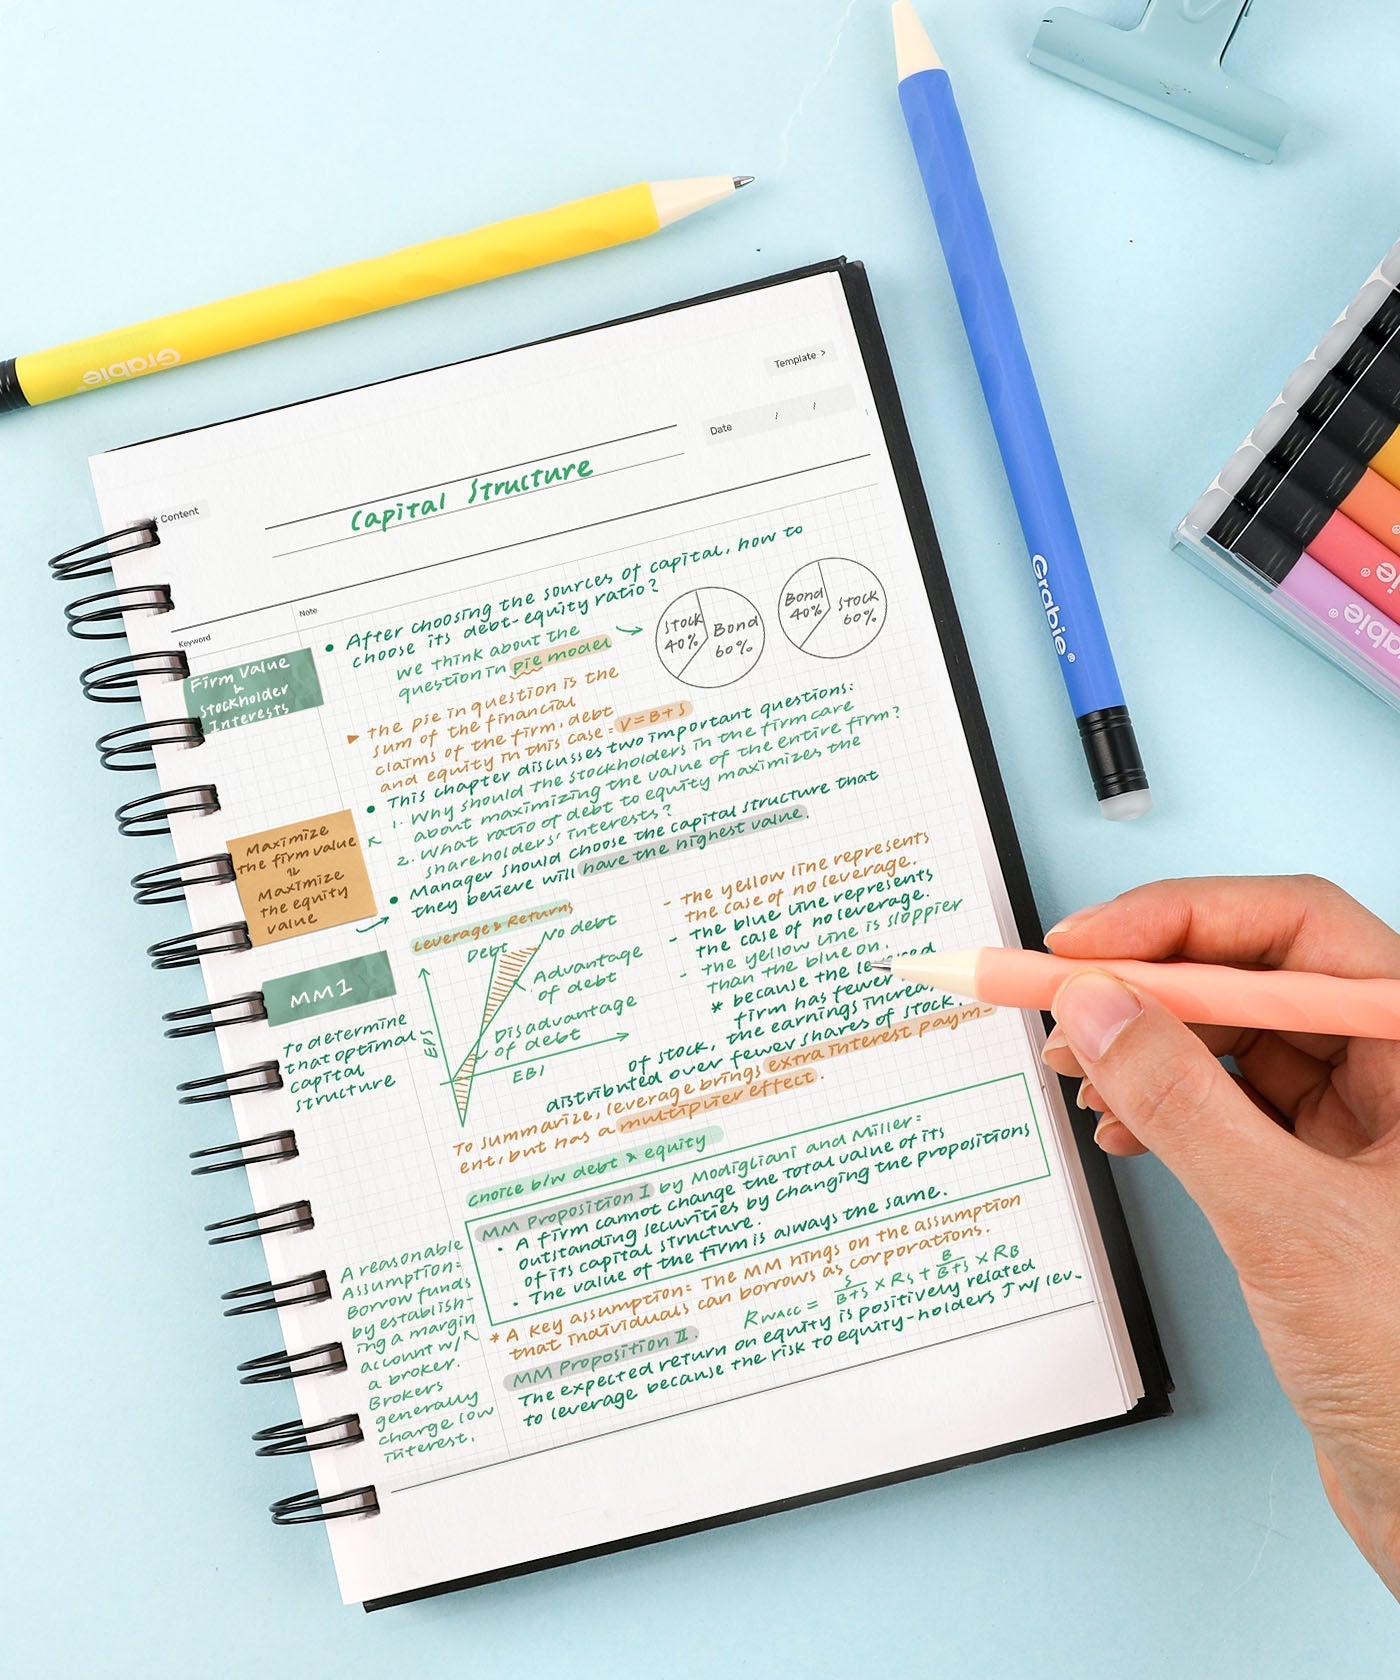 Grabie
Grabie
Grabie
Template >
Date / /
Content
Capital Structure
Keyword
Note
Firm Value
&
Stockholder
Interests
• After choosing the sources of capital, how to
choose its debt-equity ratio?
we think about the
question in pie model
Stock
40%
Bond
60%
Bond
40%
Stock
60%
the pie in question is the
sum of the financial
claims of the firm, debt
and equity in this case: V=B+S
• This chapter discusses two important questions:
1. Why should the stockholders in the firm care
about maximizing the value of the entire firm?
2. What ratio of debt to equity maximizes the
shareholders' interests?
• Manager should choose the capital structure that
they believe will have the highest value.
Maximize
the firm value
Maximize
the equity
value
MM1
To determine
that optimal
capital
structure
Leverage & Returns
Debt
No debt
Advantage
of debt
Disadvantage
of debt
EPS
EBI
- the yellow line represents
the case of no leverage.
- the blue line represents
the case of no leverage.
- the yellow line is sloppier
than the blue on.
* because the
firm has fewer
of stock, the earnings
distributed over fewer shares of stock.
To summarize, leverage brings extra interest paym-
ent, but has a multiplier effect.
Choice b/w debt & equity
MM Proposition I by Modigliani and Miller:
• A firm cannot change the total value of its
outstanding securities by changing the propositions
of its capital structure.
• The value of the firm is always the same.
* A key assumption: The MM hings on the assumption
that individuals can borrows as corporations.
RWACC = S/B+S × RS + B/B+S × RB
MM Proposition II.
The expected return on equity is positively related
to leverage because the risk to equity-holders ↑ w/ lev-
A reasonable
Assumption:
Borrow funds
by establish-
ing a margin
account w/
a broker.
Brokers
generally
charge low
interest.